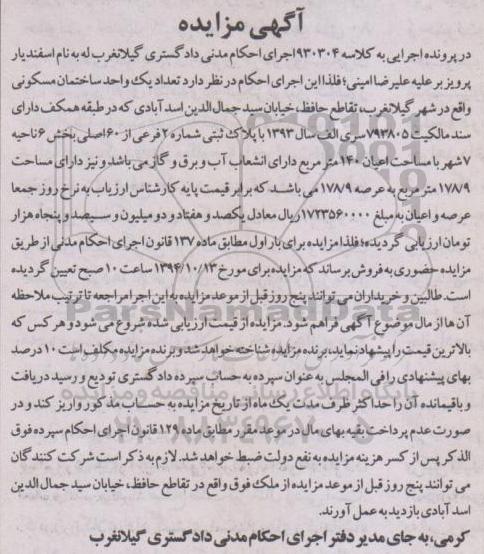 آگهی مزایده
در پرونده اجرایی به کلاسه ۹۳۰۳۰۴ اجرای احکام مدنی دادگستری گیلانغرب له به نام اسفندیار
پرویز بر علیه علیرضا امینی؛ فلذا این اجرای احکام در نظر دارد تعداد یک واحد ساختمان مسکونی
واقع در شهر گیلانغرب، تقاطع حافظ، خیابان سید جمال‌الدین اسد آبادی که در طبقه همکف دارای
سند مالکیت ۷۹۳۸۰۵ سری الف سال ۱۳۹۳ با پلاک ثبتی شماره ۲ فرعی از ۶۰ اصلی بخش ۶ ناحیه
۷ شهر با مساحت اعیان ۱۴۰ متر مربع دارای انشعاب آب و برق و گاز می باشد و نیز دارای مساحت
۱۷۸/۹ متر مربع به عرصه ۱۷۸/۹ می باشد که برابر قیمت پایه کارشناس ارزیاب به نرخ روز جمعا
عرصه و اعیان به مبلغ ۱۷۲۳۵۶۰۰۰۰ ریال معادل یکصد و هفتاد و دو میلیون و سیصد و پنجاه هزار
تومان ارزیابی گردیده؛ فلذا مزایده برای بار اول مطابق ماده ۱۳۷ قانون اجرای احکام مدنی از طریق
مزایده حضوری به فروش برساند که مزایده برای مورخ ۱۳۹۴/۱۰/۱۳ ساعت ۱۰ صبح تعیین گردیده
است. طالبین و خریداران می توانند پنج روز قبل از موعد مزایده به این اجرا مراجعه تا ترتیب ملاحظه
آن ها از مال موضوع آگهی فراهم شود. مزایده از قیمت ارزیابی شده شروع می شود و هر کس که
بالاترین قیمت را پیشنهاد نماید، برنده مزایده شناخته خواهد شد و برنده مزایده مکلف است ۱۰ درصد
بهای پیشنهادی را فی المجلس به عنوان سپرده به حساب سپرده دادگستری تودیع و رسید دریافت
و باقیمانده آن را حداکثر ظرف مدت یک ماه از تاریخ مزایده به حساب مذکور واریز کند و در
صورت عدم پرداخت بقیه بهای مال در موعد مقرر مطابق ماده ۱۲۹ قانون اجرای احکام سپرده فوق
الذکر پس از کسر هزینه مزایده به نفع دولت ضبط خواهد شد. لازم به ذکر است شرکت کنندگان
می توانند پنج روز قبل از موعد مزایده از ملک فوق واقع در تقاطع حافظ، خیابان سید جمال الدین
اسد آبادی بازدید به عمل آورند.
کرمی، به جای مدیر دفتر اجرای احکام مدنی دادگستری گیلانغرب
ParsNamadData